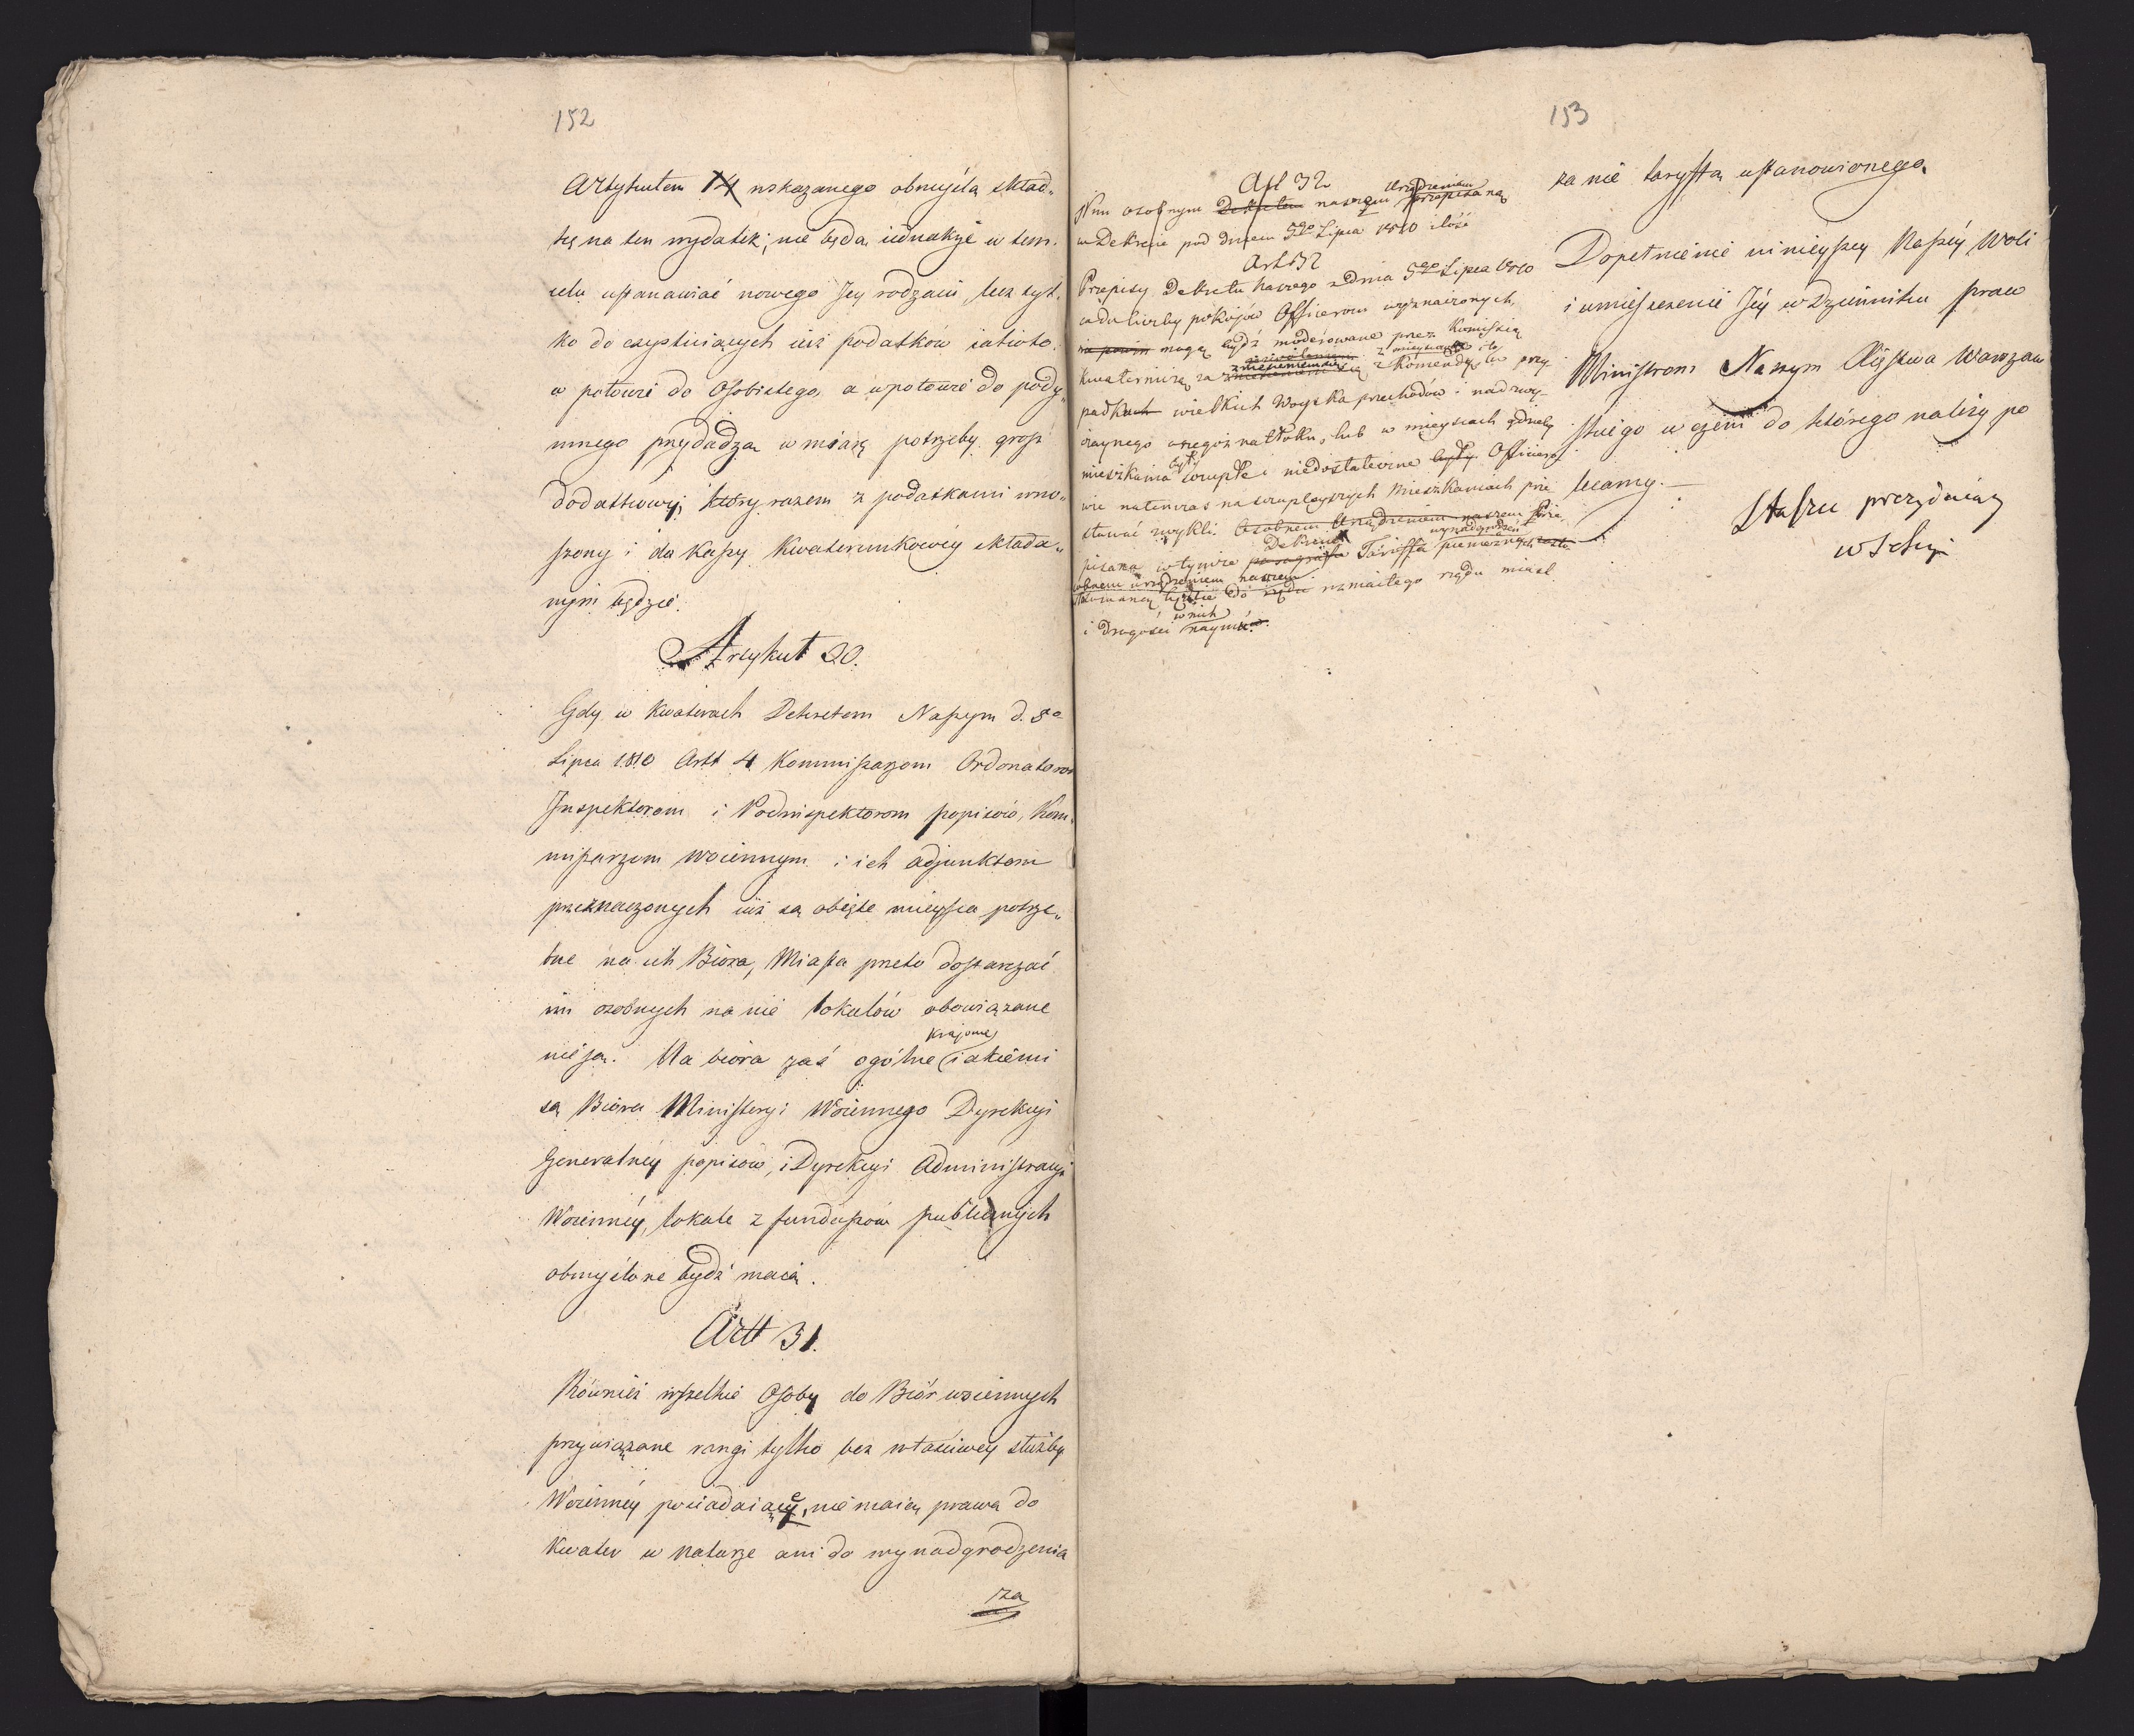 152
Artykułem 14 wskazanego obmyślą skład„
kę na ten wydatek; nie będą iednakże w tem
celu ustanawiać nowego Jey rodzaiu, lecz tyl„
ko do exystuiących iuż podatków iakoto:
w połowie do Osobistego, a w połowie do pody„
mnego przydadzą w miarę potrzeby grosz
dodatkowy, który razem z podatkami wno„
szony i do Kassy Kwaterunkowéy składa„
nym będzie.
Artykuł 30.
Gdy w Kwaterach Dekretem Naszym d. 5o
Lipca 1810 Artt 4 Kommissarzom Ordonatorom
Inspektorom i Podinspektorom popisów, Kom„
missarzom woiennym i ich adjunktom
przeznaczonych iuż są obięte mieysca potrze„
bne na ich Biora, Miasta przeto dostarczać
im osobnych na nie lokalów obowiązane
nie są. Na biora zaś ogólne krajowe iakiemi
są Biora Ministeryi Woiennego Dyrekcyi
Generalnéy popisów, i Dyrekcyi Administracyi
Woiennéy, lokale z funduszów publicznych
obmyślone bydź maią.
Artt 31.
Również wszelkie Osoby do Biór woiennych
przywiązane rangi tylko bez właściwey służby
Woiennéy posiadaiące, nie maią prawa do
Kwater w naturze ani do wynadgrodzenia
za
153
Art 32
osobnym Dekretem naszem Urządzeniem przepisaną
w Dekrecie pod dniem 5go Lipca 1810 ilość
Art 32
Przepisy Dekretu naszego z dnia 5go Lipca 1810
co do liczby pokojów Officerom wyznaczonych,
mogą bydź moderowane przez Komissią
Kwaterniczą za zniesieniem się z Komendą w przy„
padkach wielkich Woyska przechodów i nadzwy„
czaynego onegoż natłoku, lub w mieyscach gdzieby
mieszkania były szczupłe i niedostateczne były Officero„
wie natenczas na szczupleyszych mieszkaniach prze„
stawać zwykli. Osobnem Urządzeniem naszem prze„
pisana w tymże paragrafie Dekrecie Tariffa wynadgrodzeń pieniężnych
osobnem urządzeniem naszem
stosowaną będzie do rozmaitego rzędu miast
i drogości w nich naymu.
za nie taryffą ustanowionego.
Dopełnienie ninieyszey Naszéy Woli
i umieszczenie Jéy w Dzienniku praw
Ministrom Naszym Xięstwa Warszaw
skiego w czem do którego należy po
lecamy.
Staszic prezyduiący
w Sekcyi